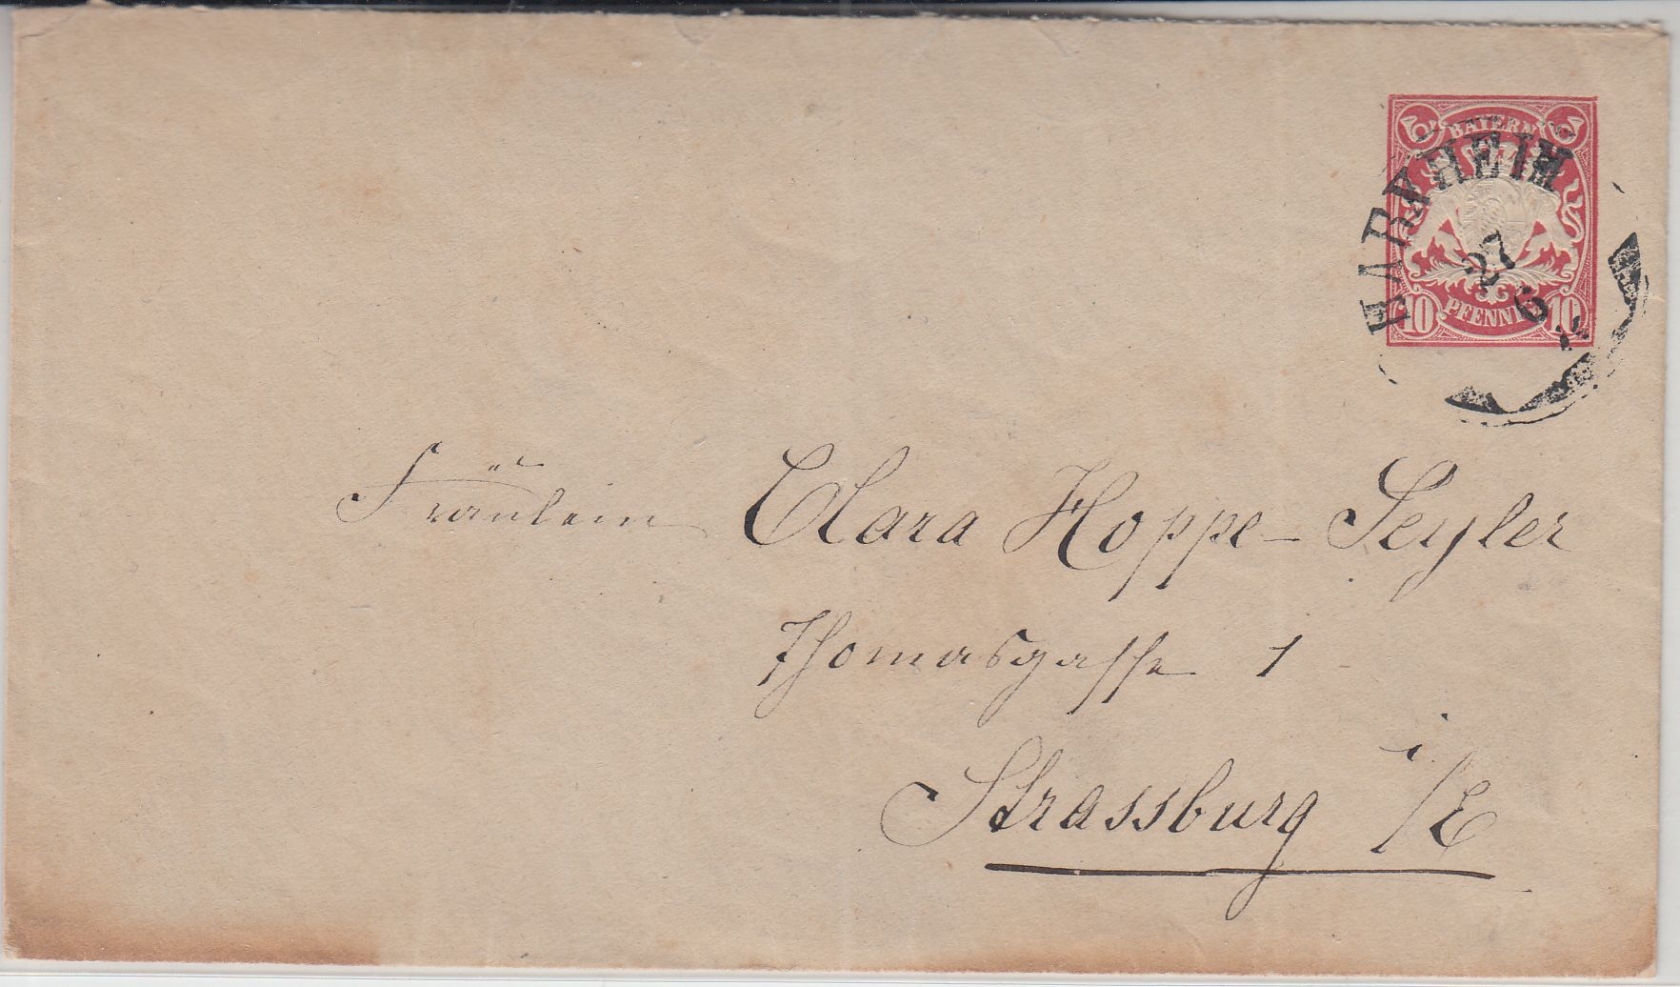 BAYERN
HARXHEIM
27
6
10 PFENNIG 10
Fräulein Clara Hoppe-Seyler
Thomasgasse 1
Strassburg i/E